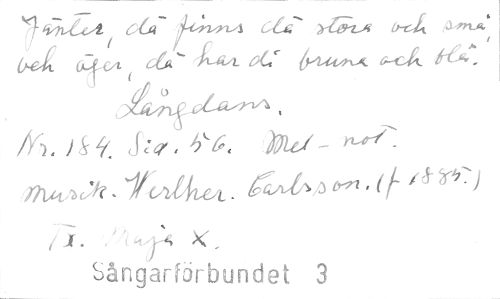 Jänter, då finns då stora och små,
och öger, då har di bruna och blå.
Långdans.
Nr. 184. Sid. 56. Mel-not.
Musik. Werther. Carlsson. (f 1885.)
Tx. Maja X.
Sångarförbundet 3